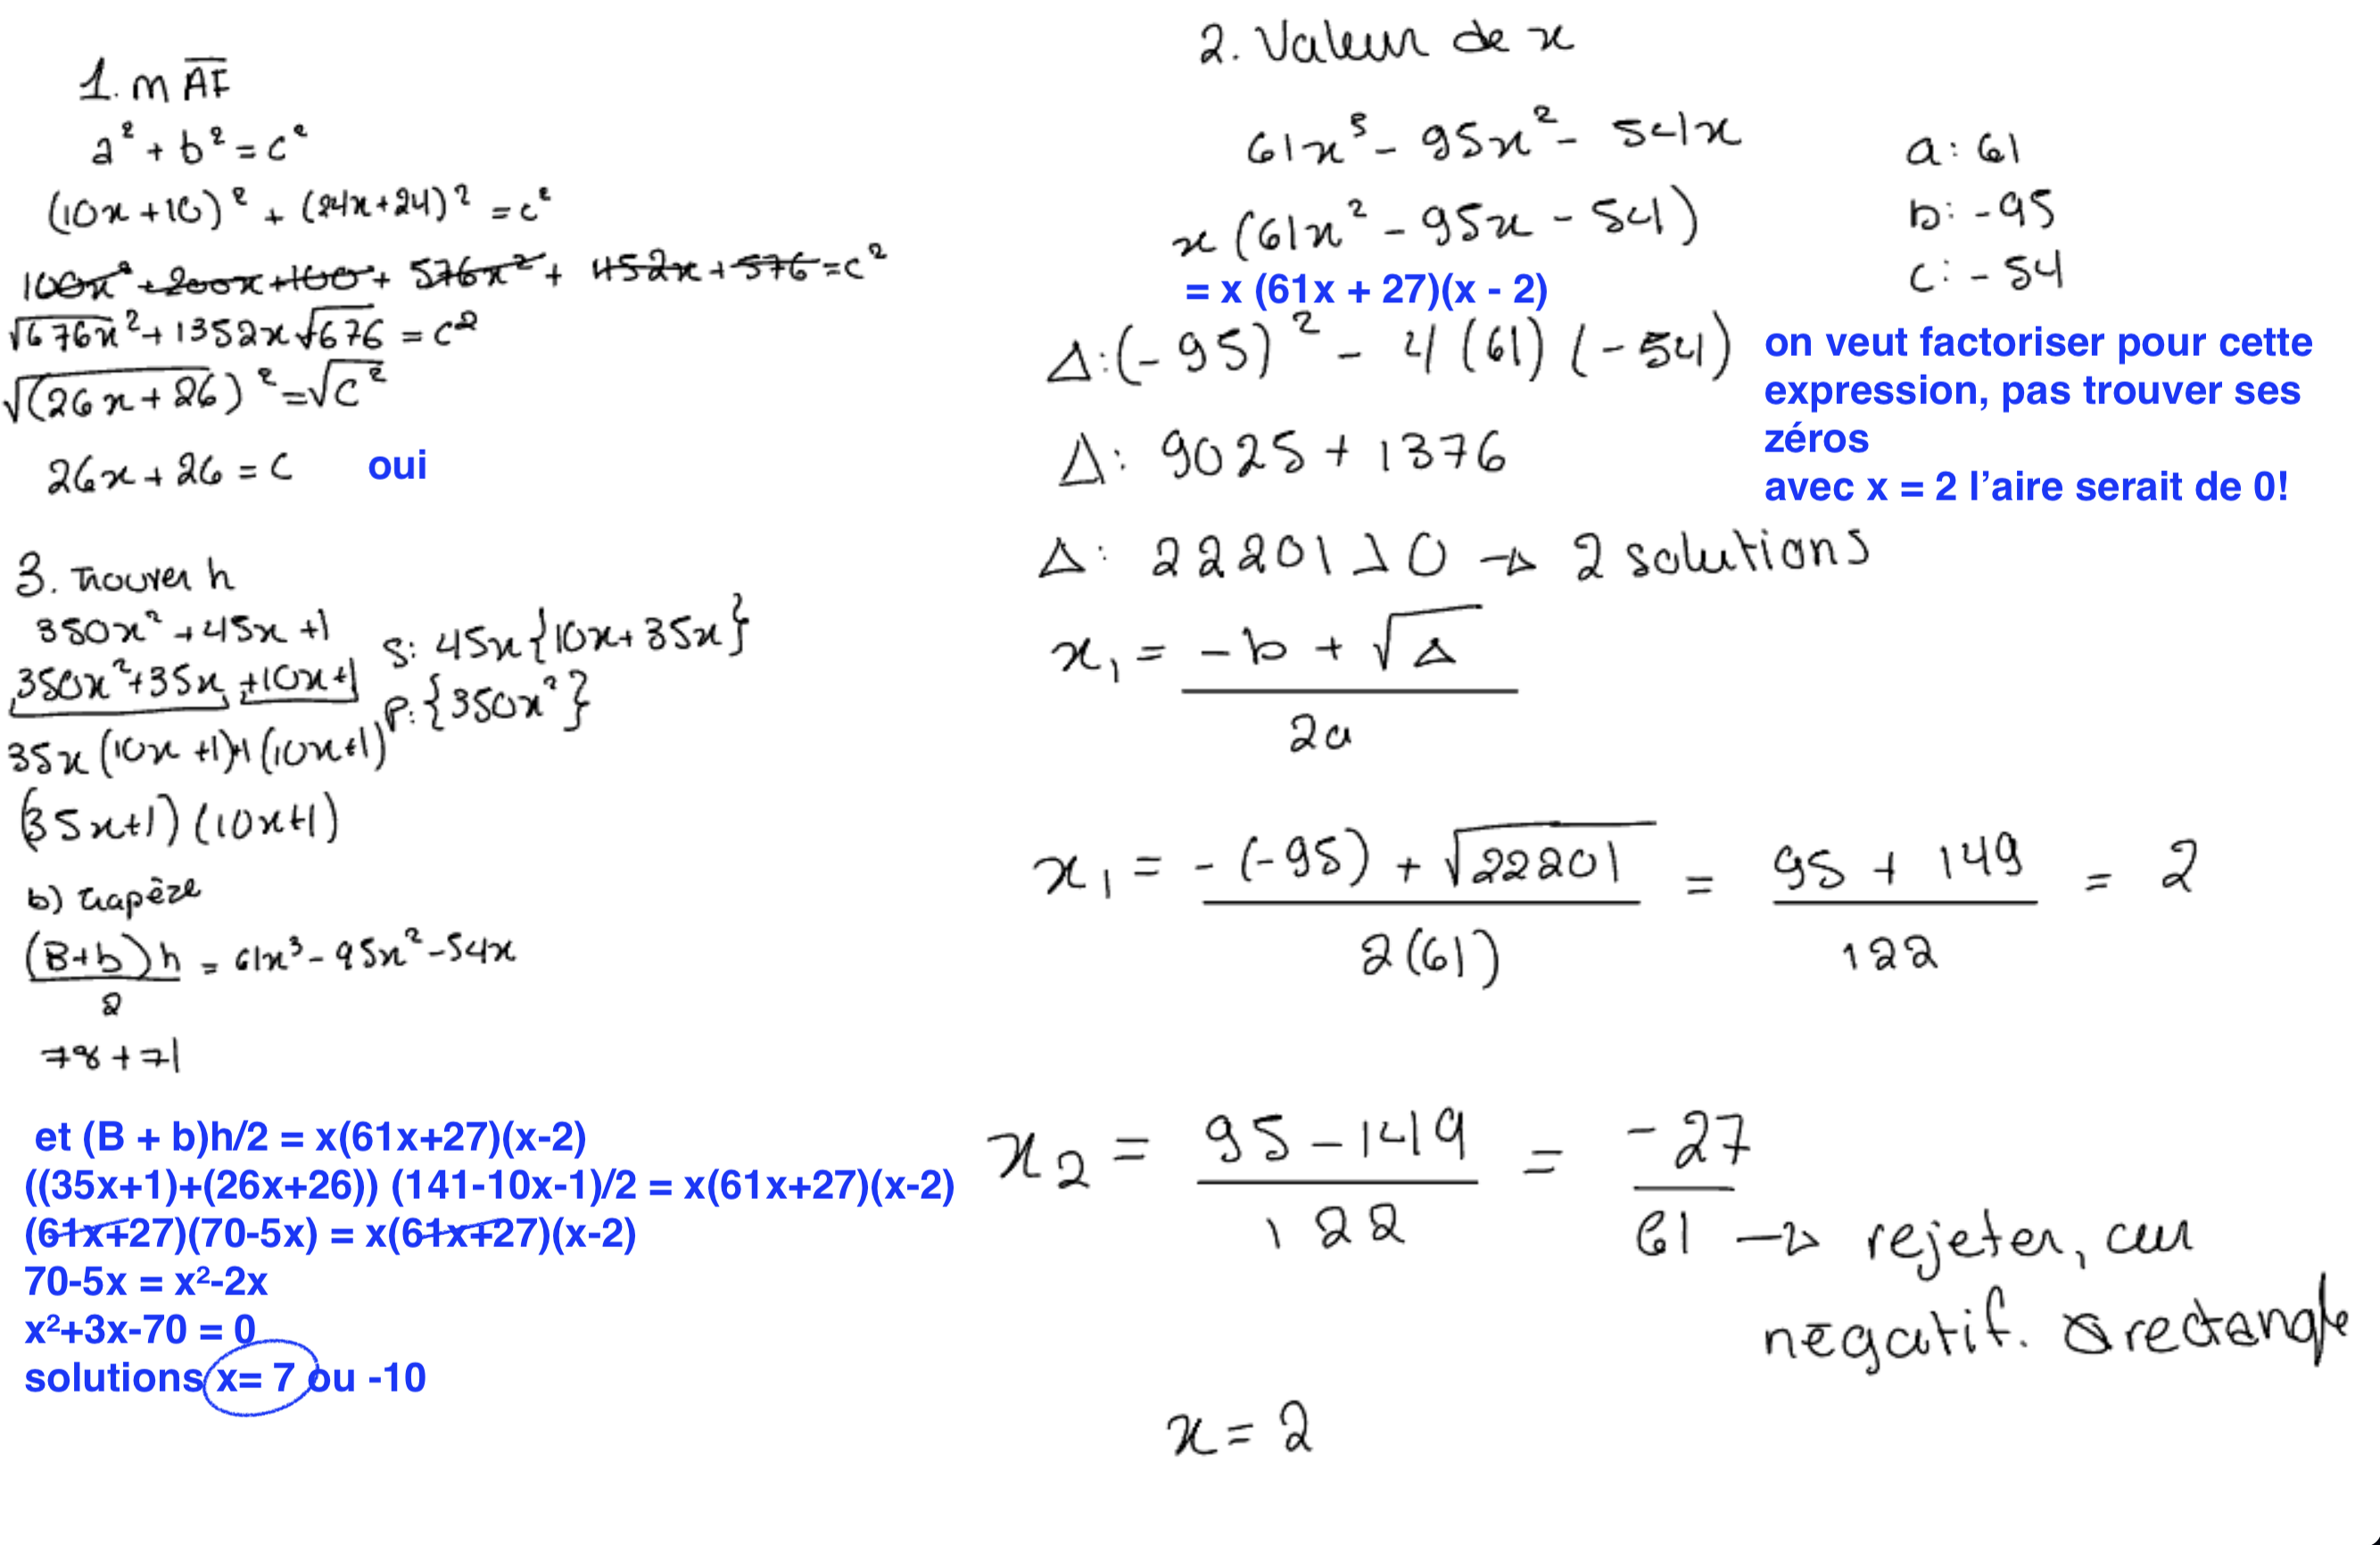 1. m AF
a² + b² = c²
(10x + 10)² + (24x + 24)² = c²
100x² + 200x + 100 + 576x² + 1152x + 576 = c²
√676x² + 1352x + √676 = c²
√(26x + 26)² = √c²
26x + 26 = c oui
3. Trouver h
350x² + 45x + 1
350x² + 35x + 10x + 1
S: 45x {10x + 35x}
P: {350x²}
35x (10x + 1) + 1 (10x + 1)
(35x + 1) (10x + 1)
b) trapèze
(B + b) h / 2 = 61x³ - 95x² - 54x
78 + 71
et (B + b)h/2 = x(61x+27)(x-2)
((35x+1)+(26x+26)) (141-10x-1)/2 = x(61x+27)(x-2)
(61x+27)(70-5x) = x(61x+27)(x-2)
70-5x = x²-2x
x²+3x-70 = 0
solutions x= 7 ou -10
2. Valeur de x
61x³ - 95x² - 54x
x (61x² - 95x - 54)
= x (61x + 27)(x - 2)
a: 61
b: -95
c: - 54
Δ: (- 95)² - 4 (61) (- 54)
on veut factoriser pour cette
expression, pas trouver ses
zéros
avec x = 2 l’aire serait de 0!
Δ: 9025 + 1376
Δ: 22201 > 0 → 2 solutions
x₁ = -b + √Δ / 2a
x₁ = - (-95) + √22201 / 2(61) = 95 + 149 / 122 = 2
x₂ = 95 - 149 / 122 = -27 / 61 → rejeter, car
négatif. rectangle
x = 2